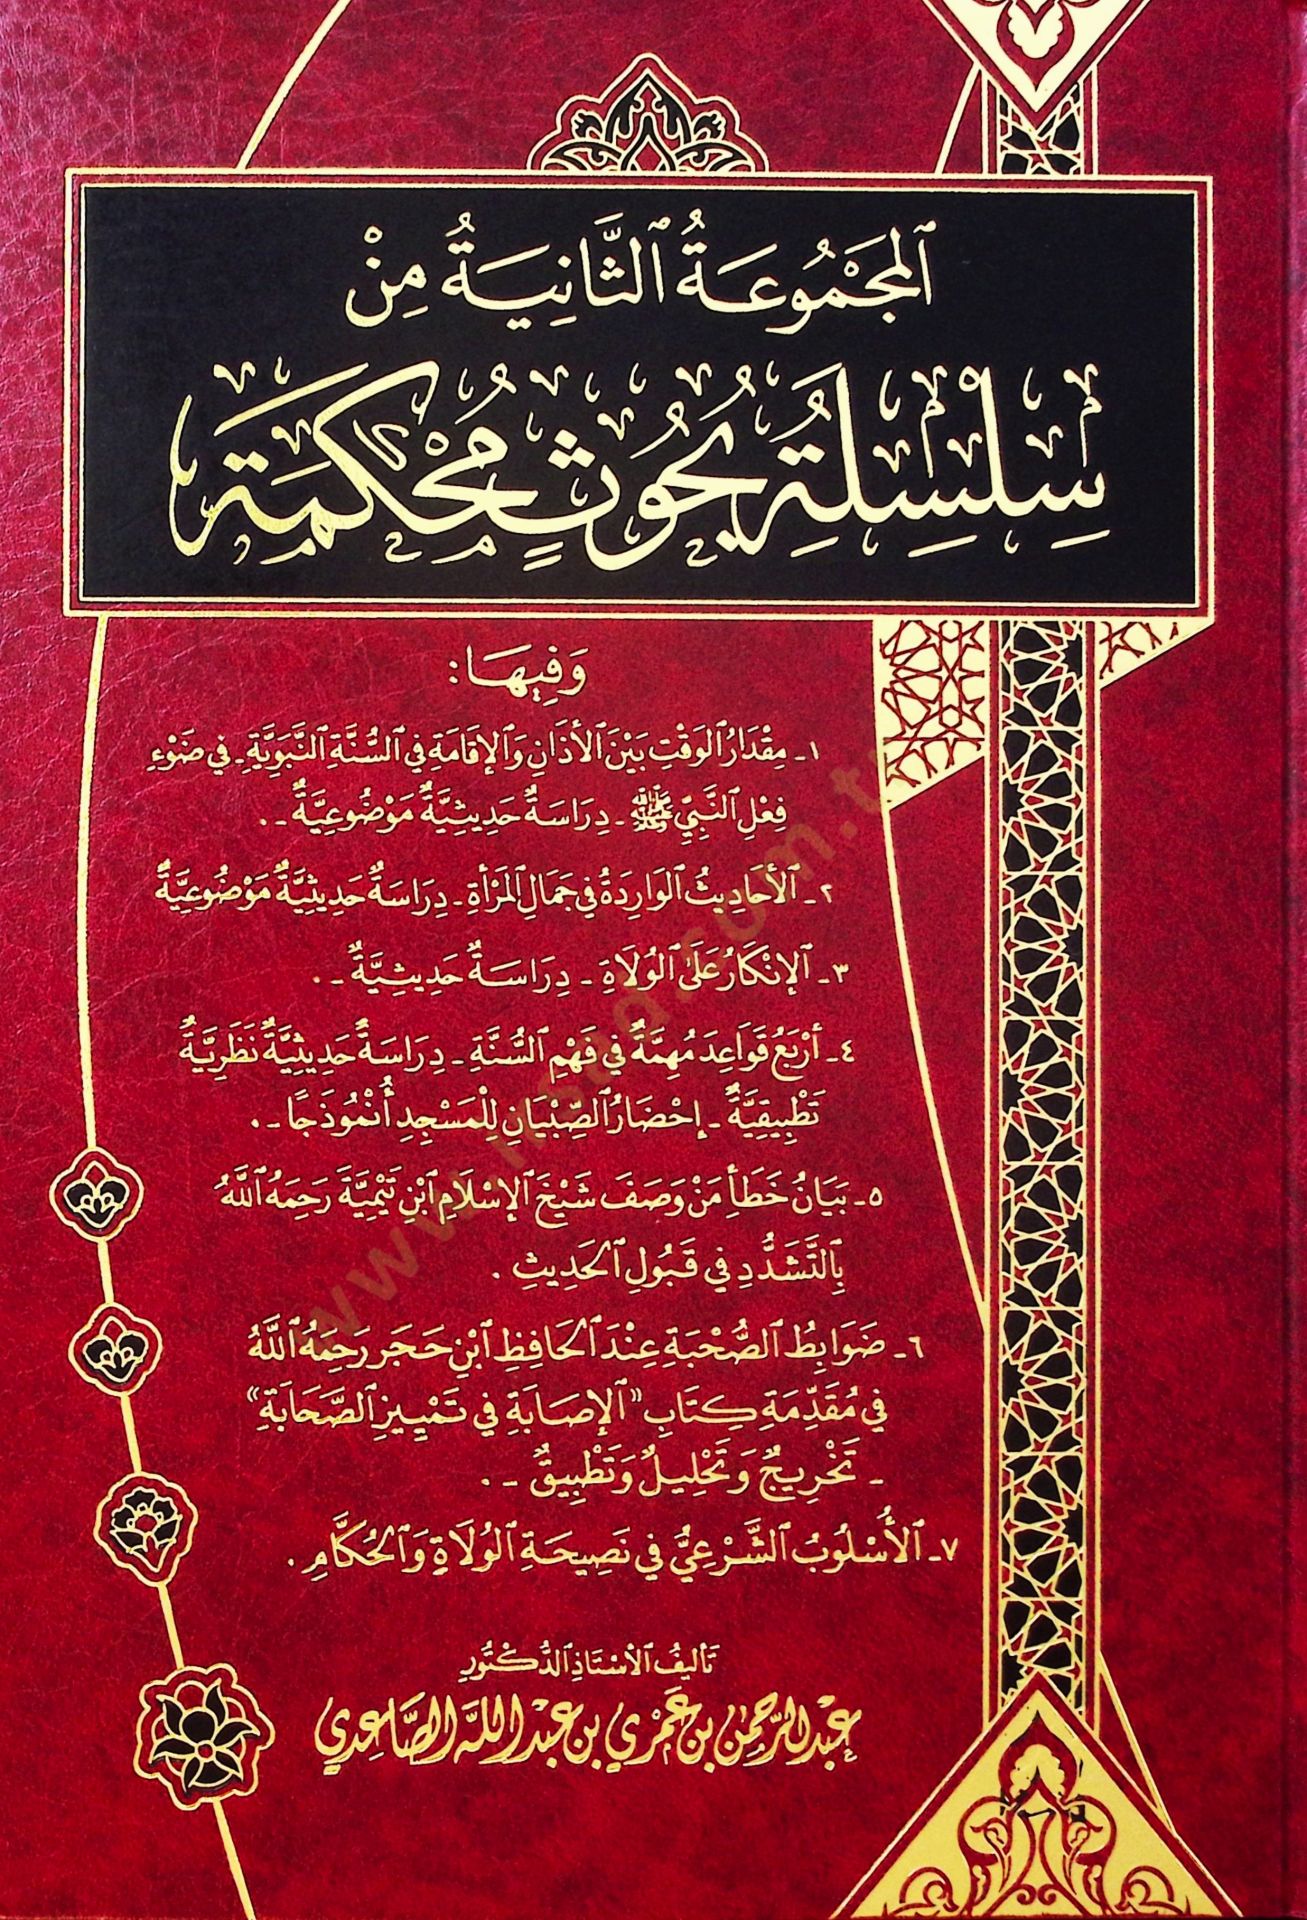 المَجْمُوعَةُ الثَّانِيَةُ مِنْ
سِلْسِلَةِ بُحُوثٍ مُحْكَمَة
وَفِيهَا:
١- مِقْدَارُ الوَقْتِ بَيْنَ الأَذَانِ وَالإِقَامَةِ فِي السُّنَّةِ النَّبَوِيَّةِ - فِي ضَوْءِ
فِعْلِ النَّبِيِّ ﷺ - دِرَاسَةٌ حَدِيثِيَّةٌ مَوْضُوعِيَّةٌ - .
٢- الأَحَادِيثُ الوَارِدَةُ فِي جَمَالِ المَرْأَةِ - دِرَاسَةٌ حَدِيثِيَّةٌ مَوْضُوعِيَّةٌ
٣- الإِنْكَارُ عَلَى الوُلَاةِ - دِرَاسَةٌ حَدِيثِيَّةٌ - .
٤- أَرْبَعُ قَوَاعِدَ مُهِمَّةٌ فِي فَهْمِ السُّنَّةِ - دِرَاسَةٌ حَدِيثِيَّةٌ نَظَرِيَّةٌ
تَطْبِيقِيَّةٌ - إِحْضَارُ الصِّبْيَانِ لِلْمَسْجِدِ أُنْمُوذَجًا - .
٥- بَيَانُ خَطَأِ مَنْ وَصَفَ شَيْخَ الإِسْلَامِ ابْنِ تَيْمِيَّةَ رَحِمَهُ اللَّهُ
بِالتَّشَدُّدِ فِي قَبُولِ الحَدِيثِ .
٦- ضَوَابِطُ الصُّحْبَةِ عِنْدَ الحَافِظِ ابْنِ حَجَر رَحِمَهُ اللَّهُ
فِي مُقَدِّمَةِ كِتَابِ «الإِصَابَةِ فِي تَمْيِيزِ الصَّحَابَةِ»
- تَخْرِيجٌ وَتَحْلِيلٌ وَتَطْبِيقٌ - .
٧- الأُسْلُوبُ الشَّرْعِيُّ فِي نَصِيحَةِ الوُلَاةِ وَالحُكَّامِ .
تَأْلِيفُ الأُسْتَاذِ الدُّكْتُورِ
عَبْدِ الرَّحْمٰنِ بن عَمْرِي بن عَبْدِ اللَّهِ الصَّاعِدِي